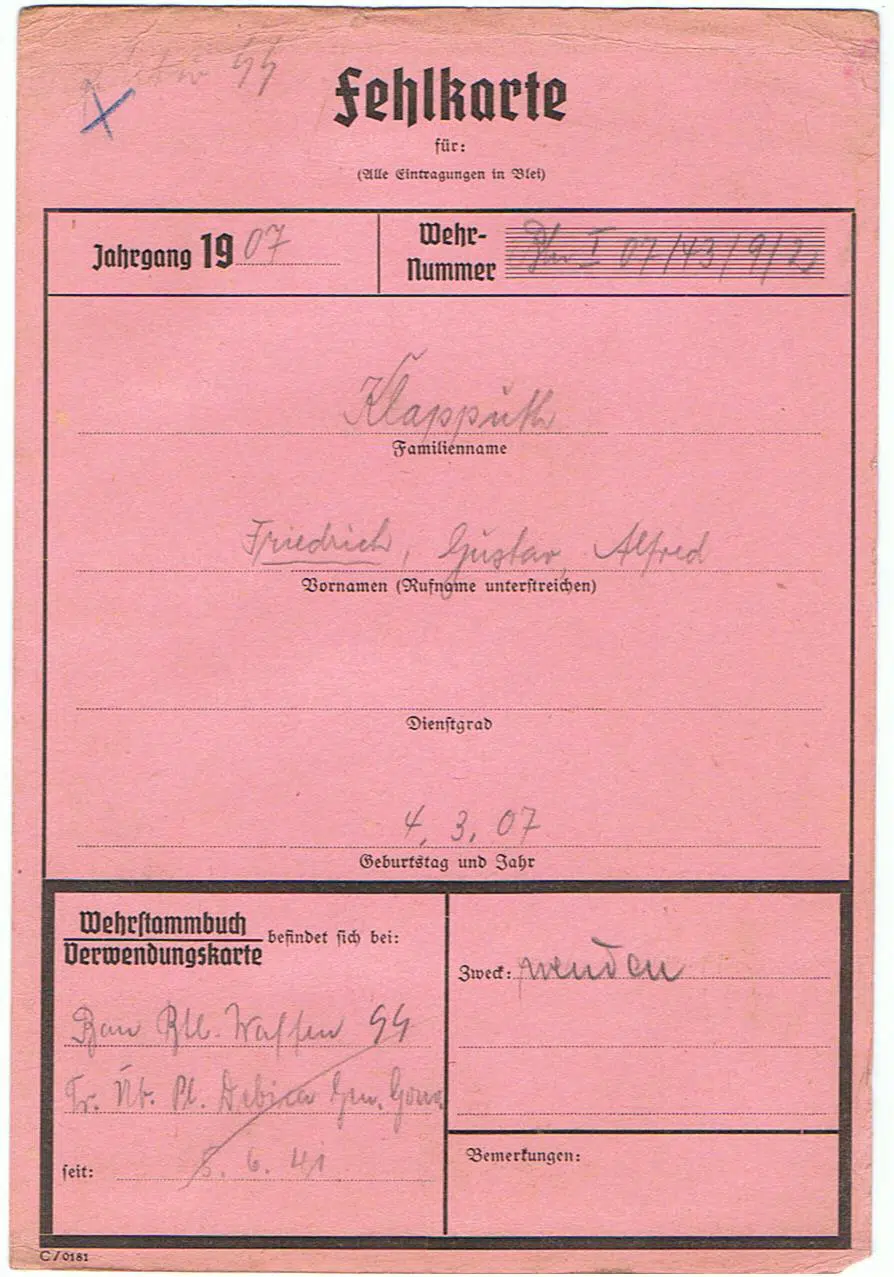 SS
Fehlkarte
für:
(Alle Eintragungen in Blei)
Jahrgang 1907
Wehr-
Nummer I 07/43/9/2
Klapputh
Familienname
Friedrich, Gustav, Alfred
Vornamen (Rufname unterstreichen)
Dienstgrad
4. 3. 07
Geburtstag und Jahr
Wehrstammbuch
Verwendungskarte befindet sich bei:
Bau Btl. Waffen SS
Tr. Üb. Pl. Debica Gen. Gouv.
seit: 8. 6. 41
Zweck: wenden
Bemerkungen:
C/0181